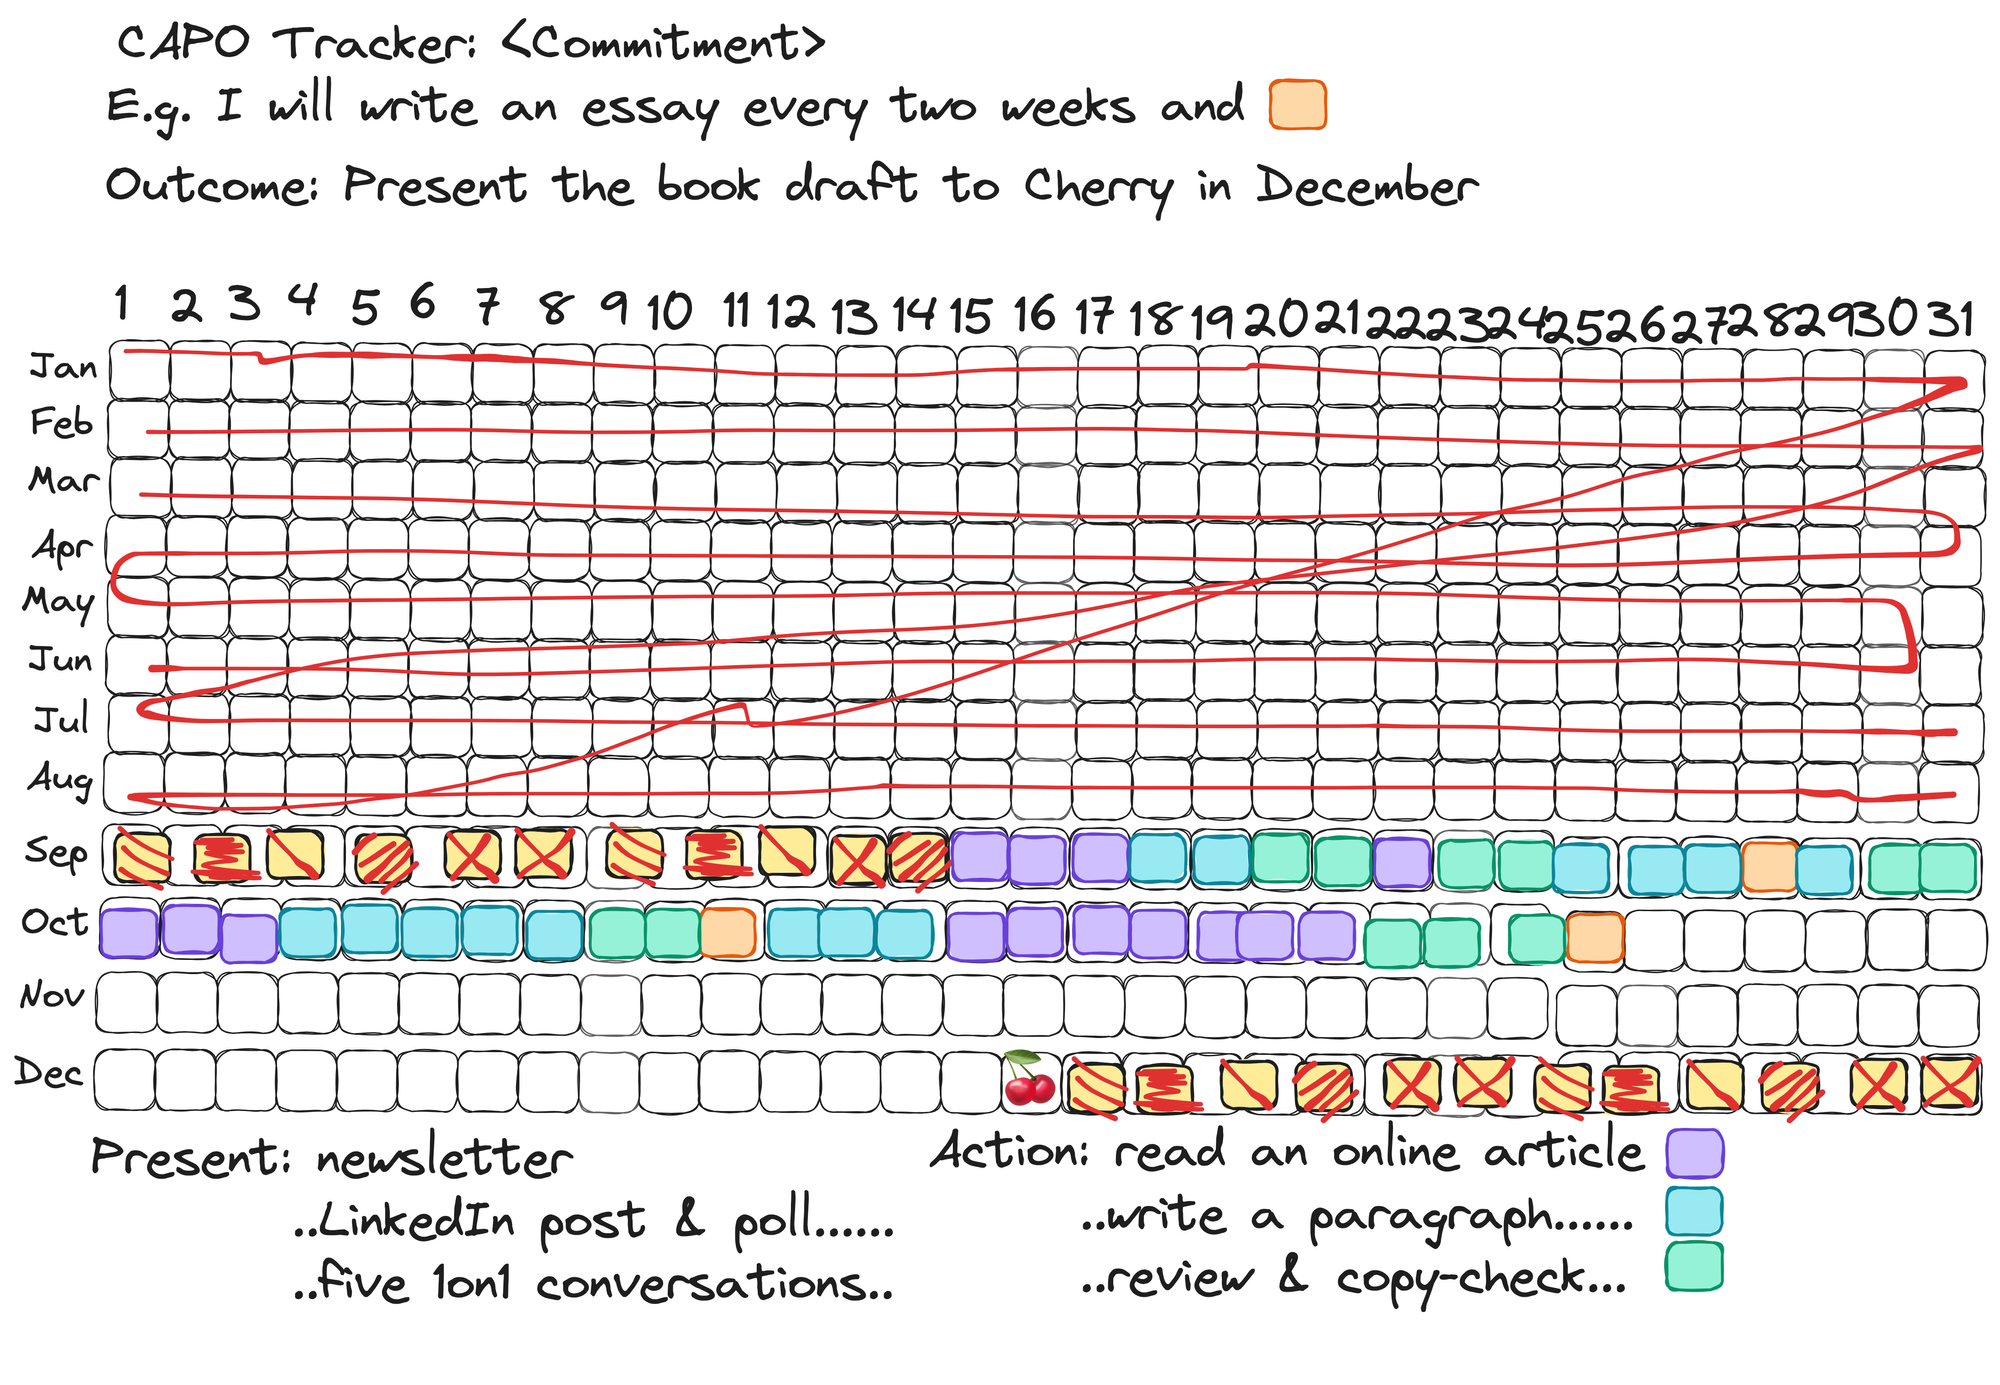 CAPO Tracker: <Commitment>
E.g. I will write an essay every two weeks and
Outcome: Present the book draft to Cherry in December
1 2 3 4 5 6 7 8 9 10 11 12 13 14 15 16 17 18 19 20 21 22 23 24 25 26 27 28 29 30 31
Jan
Feb
Mar
Apr
May
Jun
Jul
Aug
Sep
Oct
Nov
Dec
Present: newsletter
..LinkedIn post & poll......
..five 1on1 conversations..
Action: read an online article
..write a paragraph......
..review & copy-check...